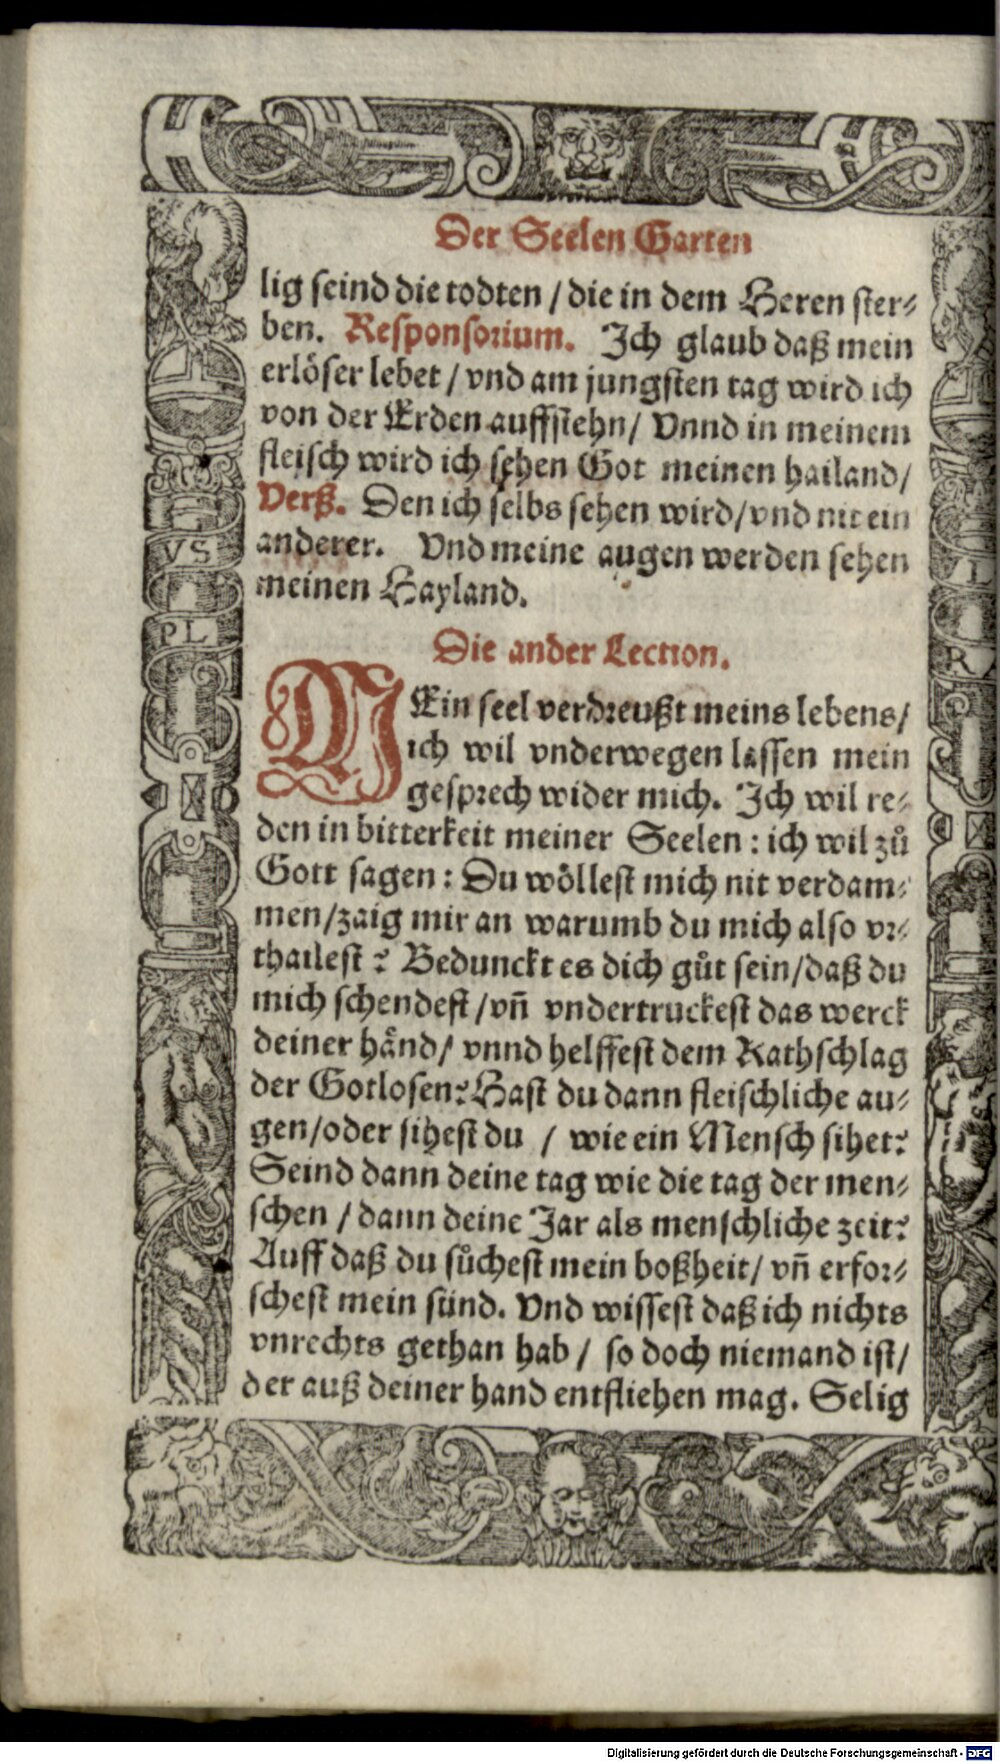 Der Seelen Garten
lig seind die todten / die in dem Heren ster⸗
ben. Responsorium. Ich glaub daß mein
erlöser lebet / vnd am jungsten tag wird ich
von der Erden auffstehn / Vnnd in meinem
fleisch wird ich sehen Got meinen hailand /
Verß. Den ich selbs sehen wird / vnd nit ein
anderer. Vnd meine augen werden sehen
meinen Hayland.
Die ander Lection.
MEin seel verdreußt meins lebens /
ich wil vnderwegen lassen mein
gesprech wider mich. Ich wil re⸗
den in bitterkeit meiner Seelen : ich wil zů
Gott sagen : Du wöllest mich nit verdam⸗
men / zaig mir an warumb du mich also vr⸗
thailest ? Bedunckt es dich gůt sein / daß du
mich schendest / vñ vndertruckest das werck
deiner händ / vnnd helffest dem Rathschlag
der Gotlosen? Hast du dann fleischliche au⸗
gen / oder sihest du / wie ein Mensch sihet?
Seind dann deine tag wie die tag der men⸗
schen / dann deine Jar als menschliche zeit?
Auff daß du sůchest mein boßheit / vñ erfor⸗
schest mein sünd. Vnd wissest daß ich nichts
vnrechts gethan hab / so doch niemand ist /
der auß deiner hand entfliehen mag. Selig
VS
PL
L
R
Digitalisierung gefördert durch die Deutsche Forschungsgemeinschaft - DFG